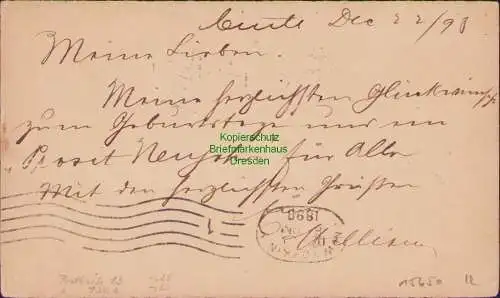 Dec 22/98
Meine Lieben.
Meine herzlichsten Glückwünsche
zum Geburtstage und ein
"Prosit Neujahr" für Alle
Mit den herzlichsten Grüssen
Kopierschutz
Briefmarkenhaus
Dresden
1
1898
15650